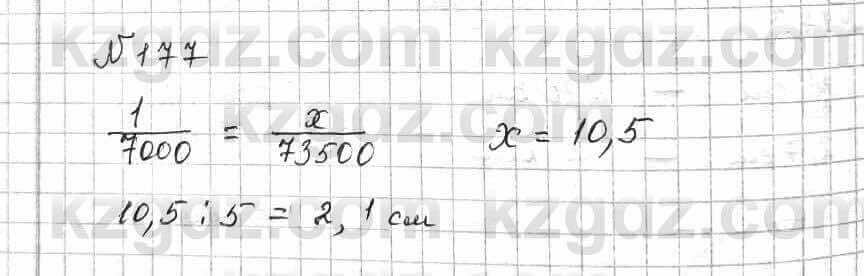 kzgdz.com kzgdz.com
№ 177
kzgdz.com kzgdz.com
1/7000 = x/73500   x = 10,5
kzgdz.com kzgdz.com
10,5 : 5 = 2,1 см